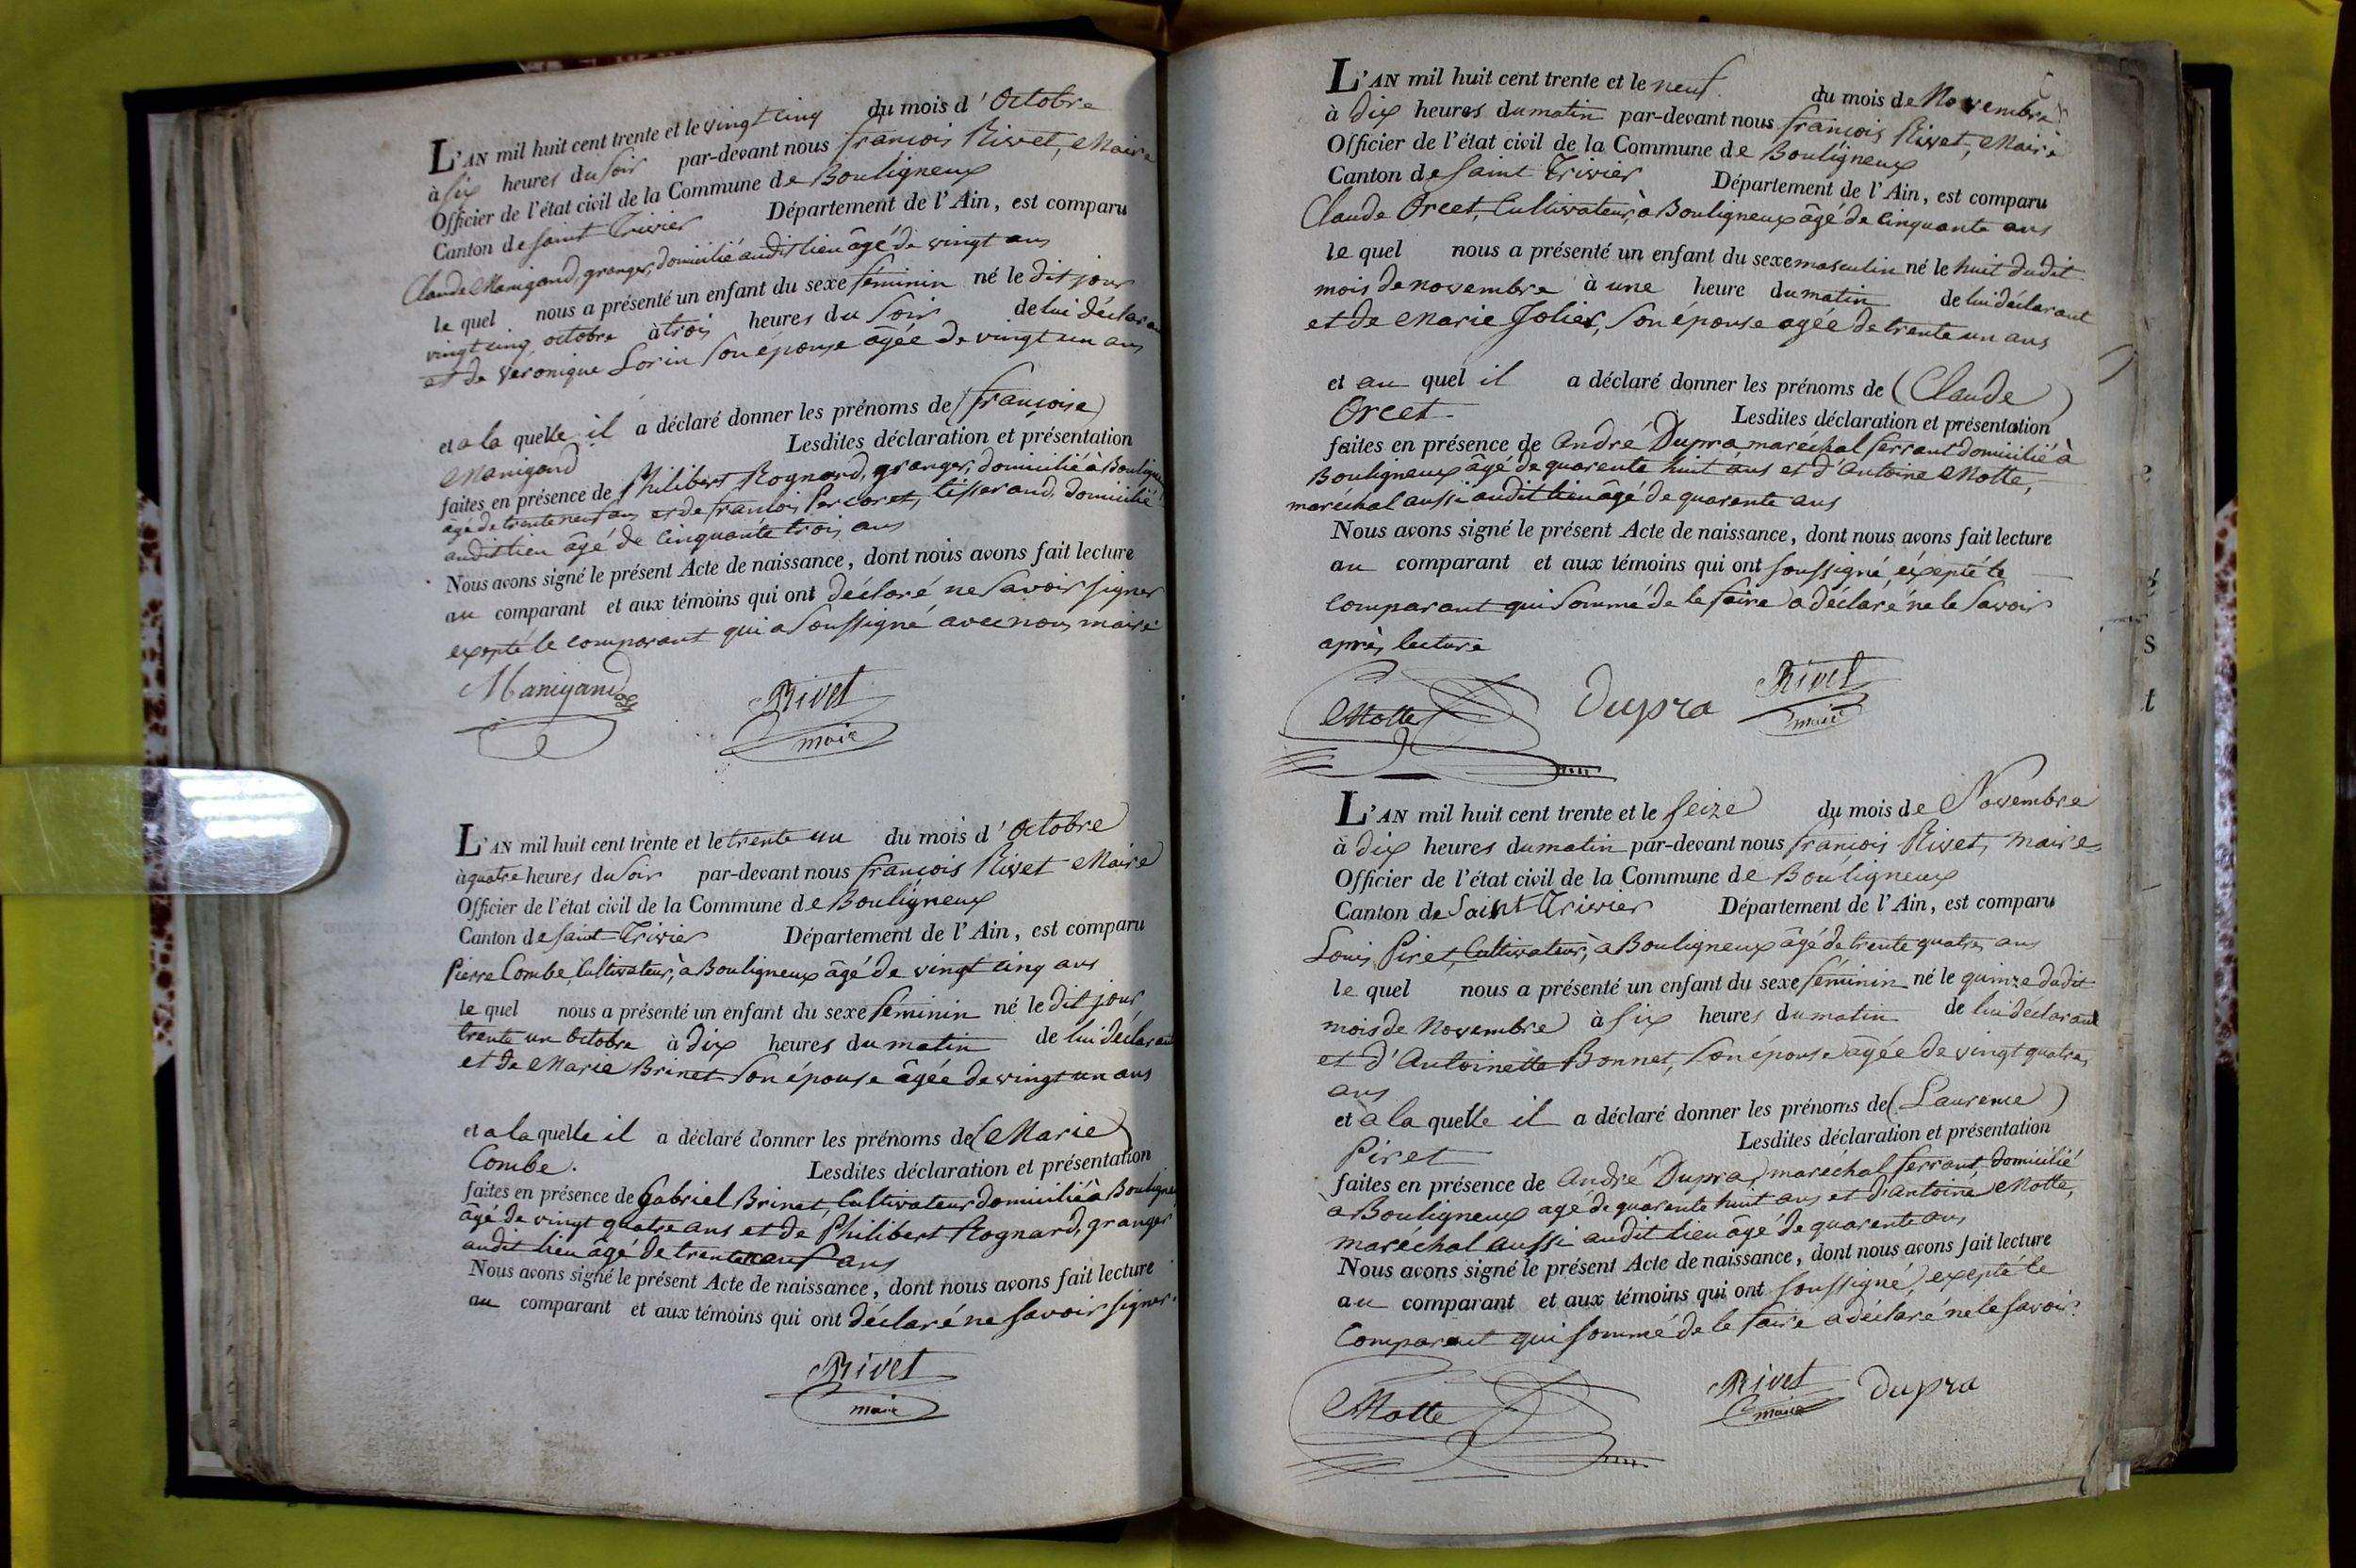 L'AN mil huit cent trente et le vingt cinq du mois d' Octobre
à six heures du soir par-devant nous françois Rivet, Maire
Officier de l'état civil de la Commune de Bouligneux
Canton de saint Trivier Département de l'Ain, est comparu
Claude Manigand, granger, domicilié audit lieu âgé de vingt ans
le quel nous a présenté un enfant du sexe féminin né le dit jour
vingt cinq octobre à trois heures du soir de lui déclarant
et de Veronique Lorin son épouse âgée de vingt un ans
et a la quelle il a déclaré donner les prénoms de (françoise)
Manigand Lesdites déclaration et présentation
faites en présence de Philibert Rognard, granger, domicilié à Bouligneux
âgé de trente neuf ans et de francois Percoret, tisserand, domicilié
audit lieu âgé de cinquante trois ans
Nous avons signé le présent Acte de naissance, dont nous avons fait lecture
au comparant et aux témoins qui ont déclaré ne savoir signer
expepté le comparant qui a soussigné avec nous maire
Manigand Rivet
maire
L'AN mil huit cent trente et le trente un du mois d' Octobre
à quatre heures du soir par-devant nous françois Rivet Maire
Officier de l'état civil de la Commune de Bouligneux
Canton de saint Trivier Département de l'Ain, est comparu
Pierre Combe, Cultivateur, à Bouligneux âgé de vingt cinq ans
le quel nous a présenté un enfant du sexe féminin né le dit jour
trente un Octobre à dix heures du matin de lui déclarant
et de Marie Brinet son épouse âgée de vingt un ans
et a la quelle il a déclaré donner les prénoms de (Marie)
Combe. Lesdites déclaration et présentation
faites en présence de Gabriel Brinet, Cultivateur domicilié à Bouligneux
âgé de vingt quatre ans et de Philibert Rognard, granger
audit lieu âgé de trente neuf ans
Nous avons signé le présent Acte de naissance, dont nous avons fait lecture
au comparant et aux témoins qui ont déclaré ne savoir signer.
Rivet
maire
L'AN mil huit cent trente et le neuf du mois de Novembre
à Dix heures du matin par-devant nous françois Rivet, Maire
Officier de l'état civil de la Commune de Bouligneux
Canton de saint Trivier Département de l'Ain, est comparu
Claude Orcet, Cultivateur, à Bouligneux âgé de cinquante ans
le quel nous a présenté un enfant du sexe masculin né le huit dudit
mois de novembre à une heure du matin de lui déclarant
et de Marie Jolier, son épouse agée de trente un ans
et au quel il a déclaré donner les prénoms de (Claude)
Orcet. Lesdites déclaration et présentation
faites en présence de André Dupra, maréchal ferrant domicilié à
Bouligneux âgé de quarente huit ans et d'Antoine Motte,
maréchal aussi audit lieu âgé de quarente ans
Nous avons signé le présent Acte de naissance, dont nous avons fait lecture
au comparant et aux témoins qui ont soussigné, éxepté le
comparant qui sommé de le faire a déclaré ne le savoir
après lecture
Motte Dupra Rivet
maire
L'AN mil huit cent trente et le seize du mois de Novembre
à dix heures du matin par-devant nous francois Rivet, maire
Officier de l'état civil de la Commune de Bouligneux
Canton de Saint Trivier Département de l'Ain, est comparu
Louis Piret, Cultivateur, à Bouligneux âgé de trente quatre ans
le quel nous a présenté un enfant du sexe féminin né le quinze dudit
mois de Novembre à six heures du matin de lui déclarant
et d'Antoinette Bonnet, son épouse âgée de vingt quatre
ans
et à la quelle il a déclaré donner les prénoms de (Laurence)
Piret Lesdites déclaration et présentation
faites en présence de André Dupra, maréchal ferrant, domicilié
à Bouligneux agé de quarente huit ans et d'Antoine Motte,
maréchal aussi audit lieu âgé de quarente ans
Nous avons signé le présent Acte de naissance, dont nous avons fait lecture
au comparant et aux témoins qui ont soussigné, expepté le
Comparant qui sommé de le faire a déclaré ne le savoir.
Motte Rivet Dupra
maire